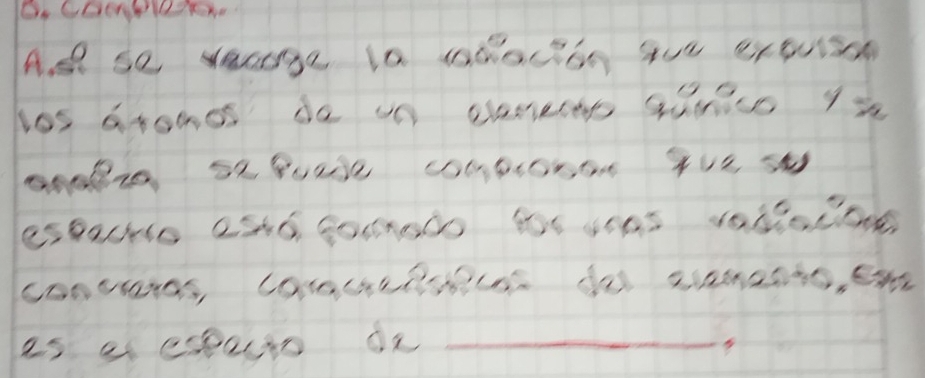 B. Completa.
A. Si se recoge la radiación que expulsan
los átomos de un elemento químico y se
analiza se puede comprobar que su
espectro está formado por unas radiaciones
concretas, características del elemento, Este
es el espectro de ________.